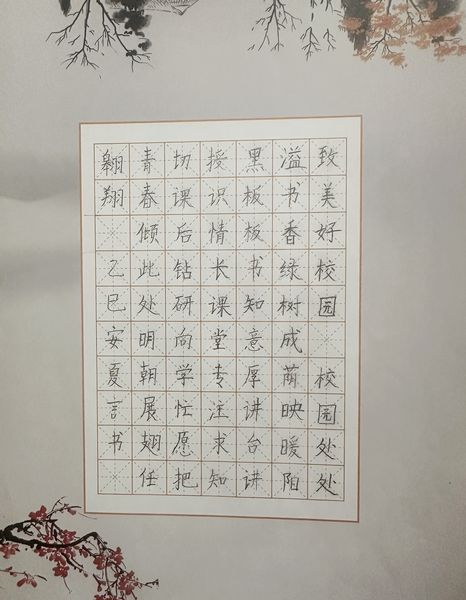 致美好校园 校园处处
溢书香绿树成荫映暖阳
黑板板书知意厚讲台讲
授识情长课堂专注求知
切课后钻研向学忙愿把
青春倾此处明朝展翅任
翱翔 乙巳安夏言书